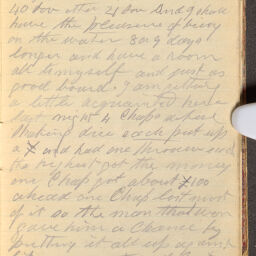 40 hour after 24 hour and I shall
have the pleasure of being
on the water 3 or 4 days
longer and have a room
all to myself and just as
good board. I am getting
a little acquainted here
last night 4 Chaps asked
Shaking dice each put up
a X and had one throw and
the highest got the money
one Chap got about $100
ahead one Chap lost most
of it so the man that won
gave him a Chance by
putting it all up against